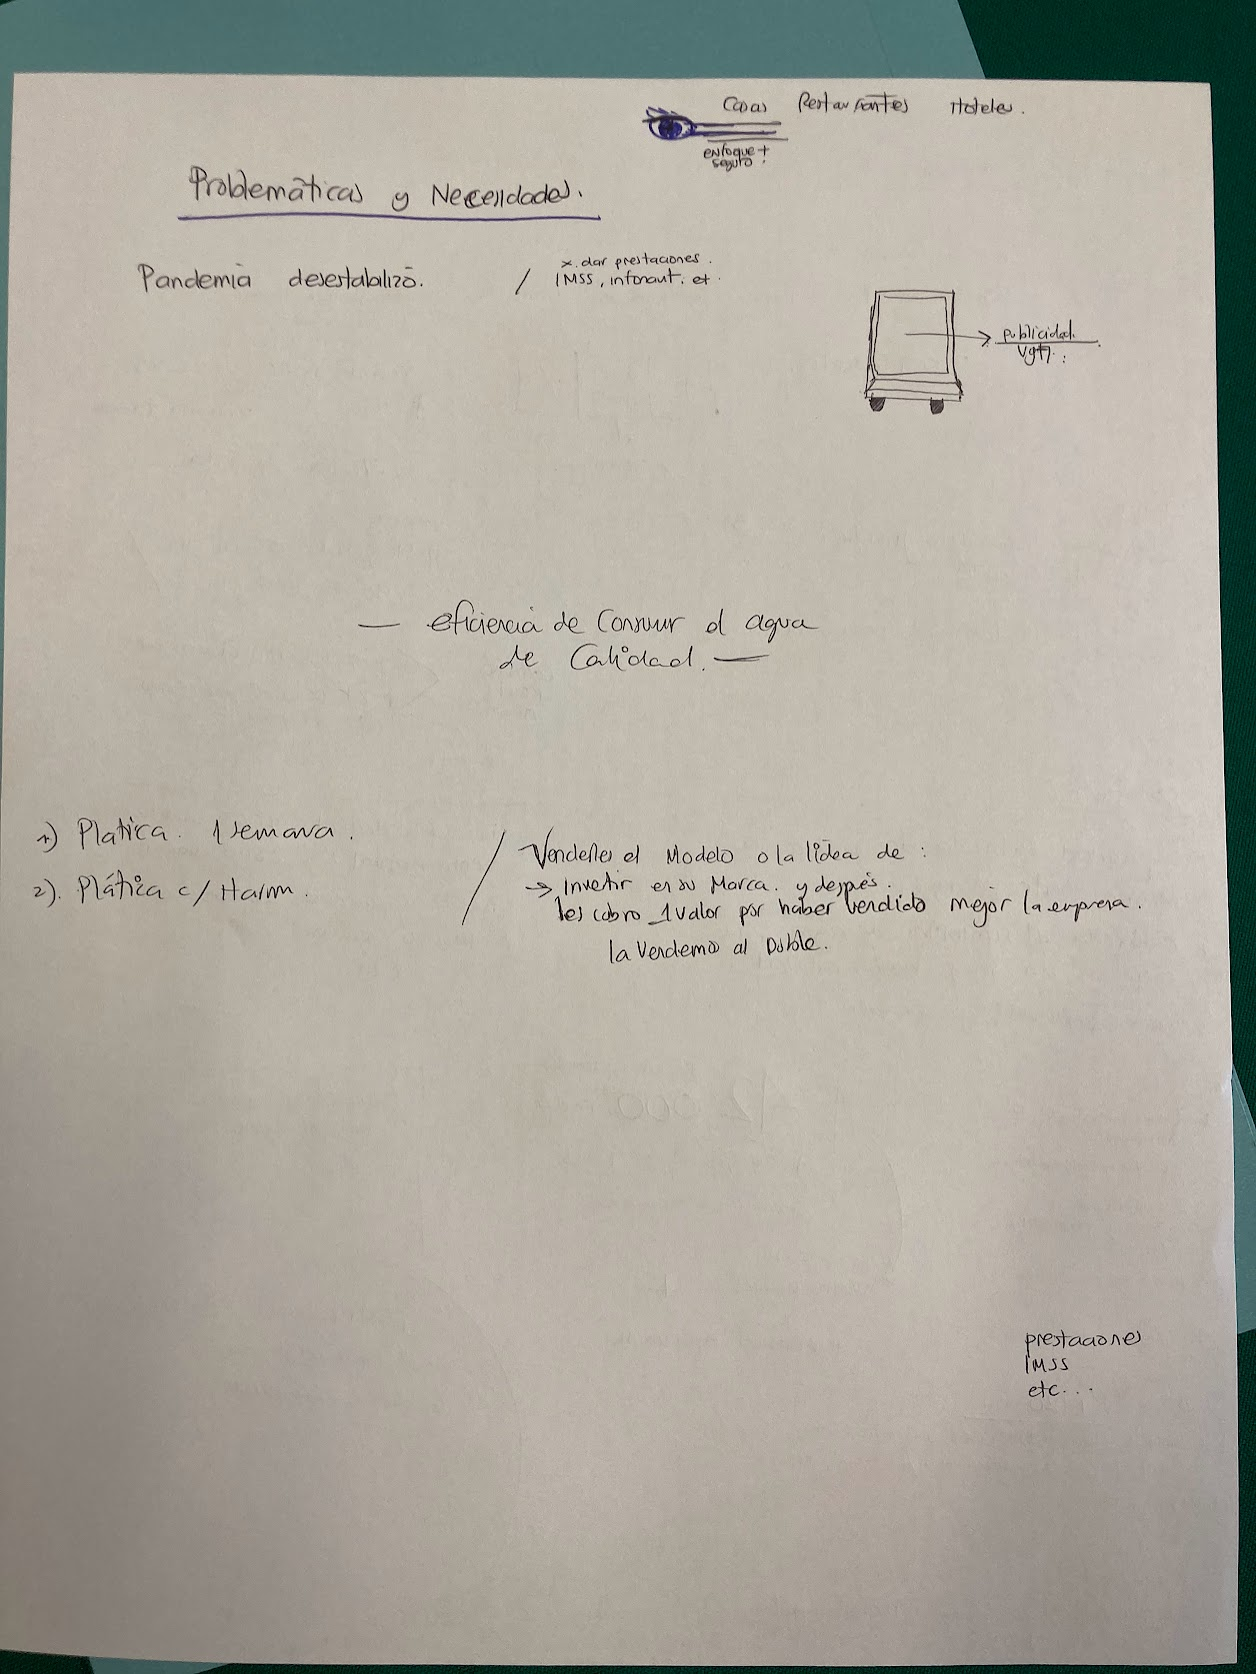 Casas Restaurantes Hoteles.
enfoque +
seguro.
Problemáticas y Necesidades.
Pandemia desestabilizó. /
x. dar prestaciones.
IMSS, infonavit. et.
publicidad.
— eficiencia de Consumir el agua
de Calidad. —
1) Platica. 1 semana.
2). Plática c/ 
/ Venderles el Modelo o la Idea de :
→ Invertir en su Marca. y después.
les cobro 1 valor por haber vendido mejor la empresa.
la vendemos al Doble.
prestaciones
IMSS
etc...